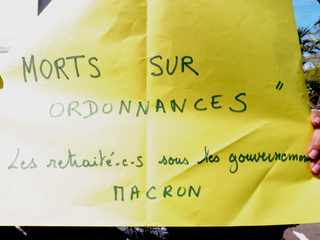 MORTS SUR
ORDONNANCES "
Les retraité.e.s sous les gouvernemen
MACRON